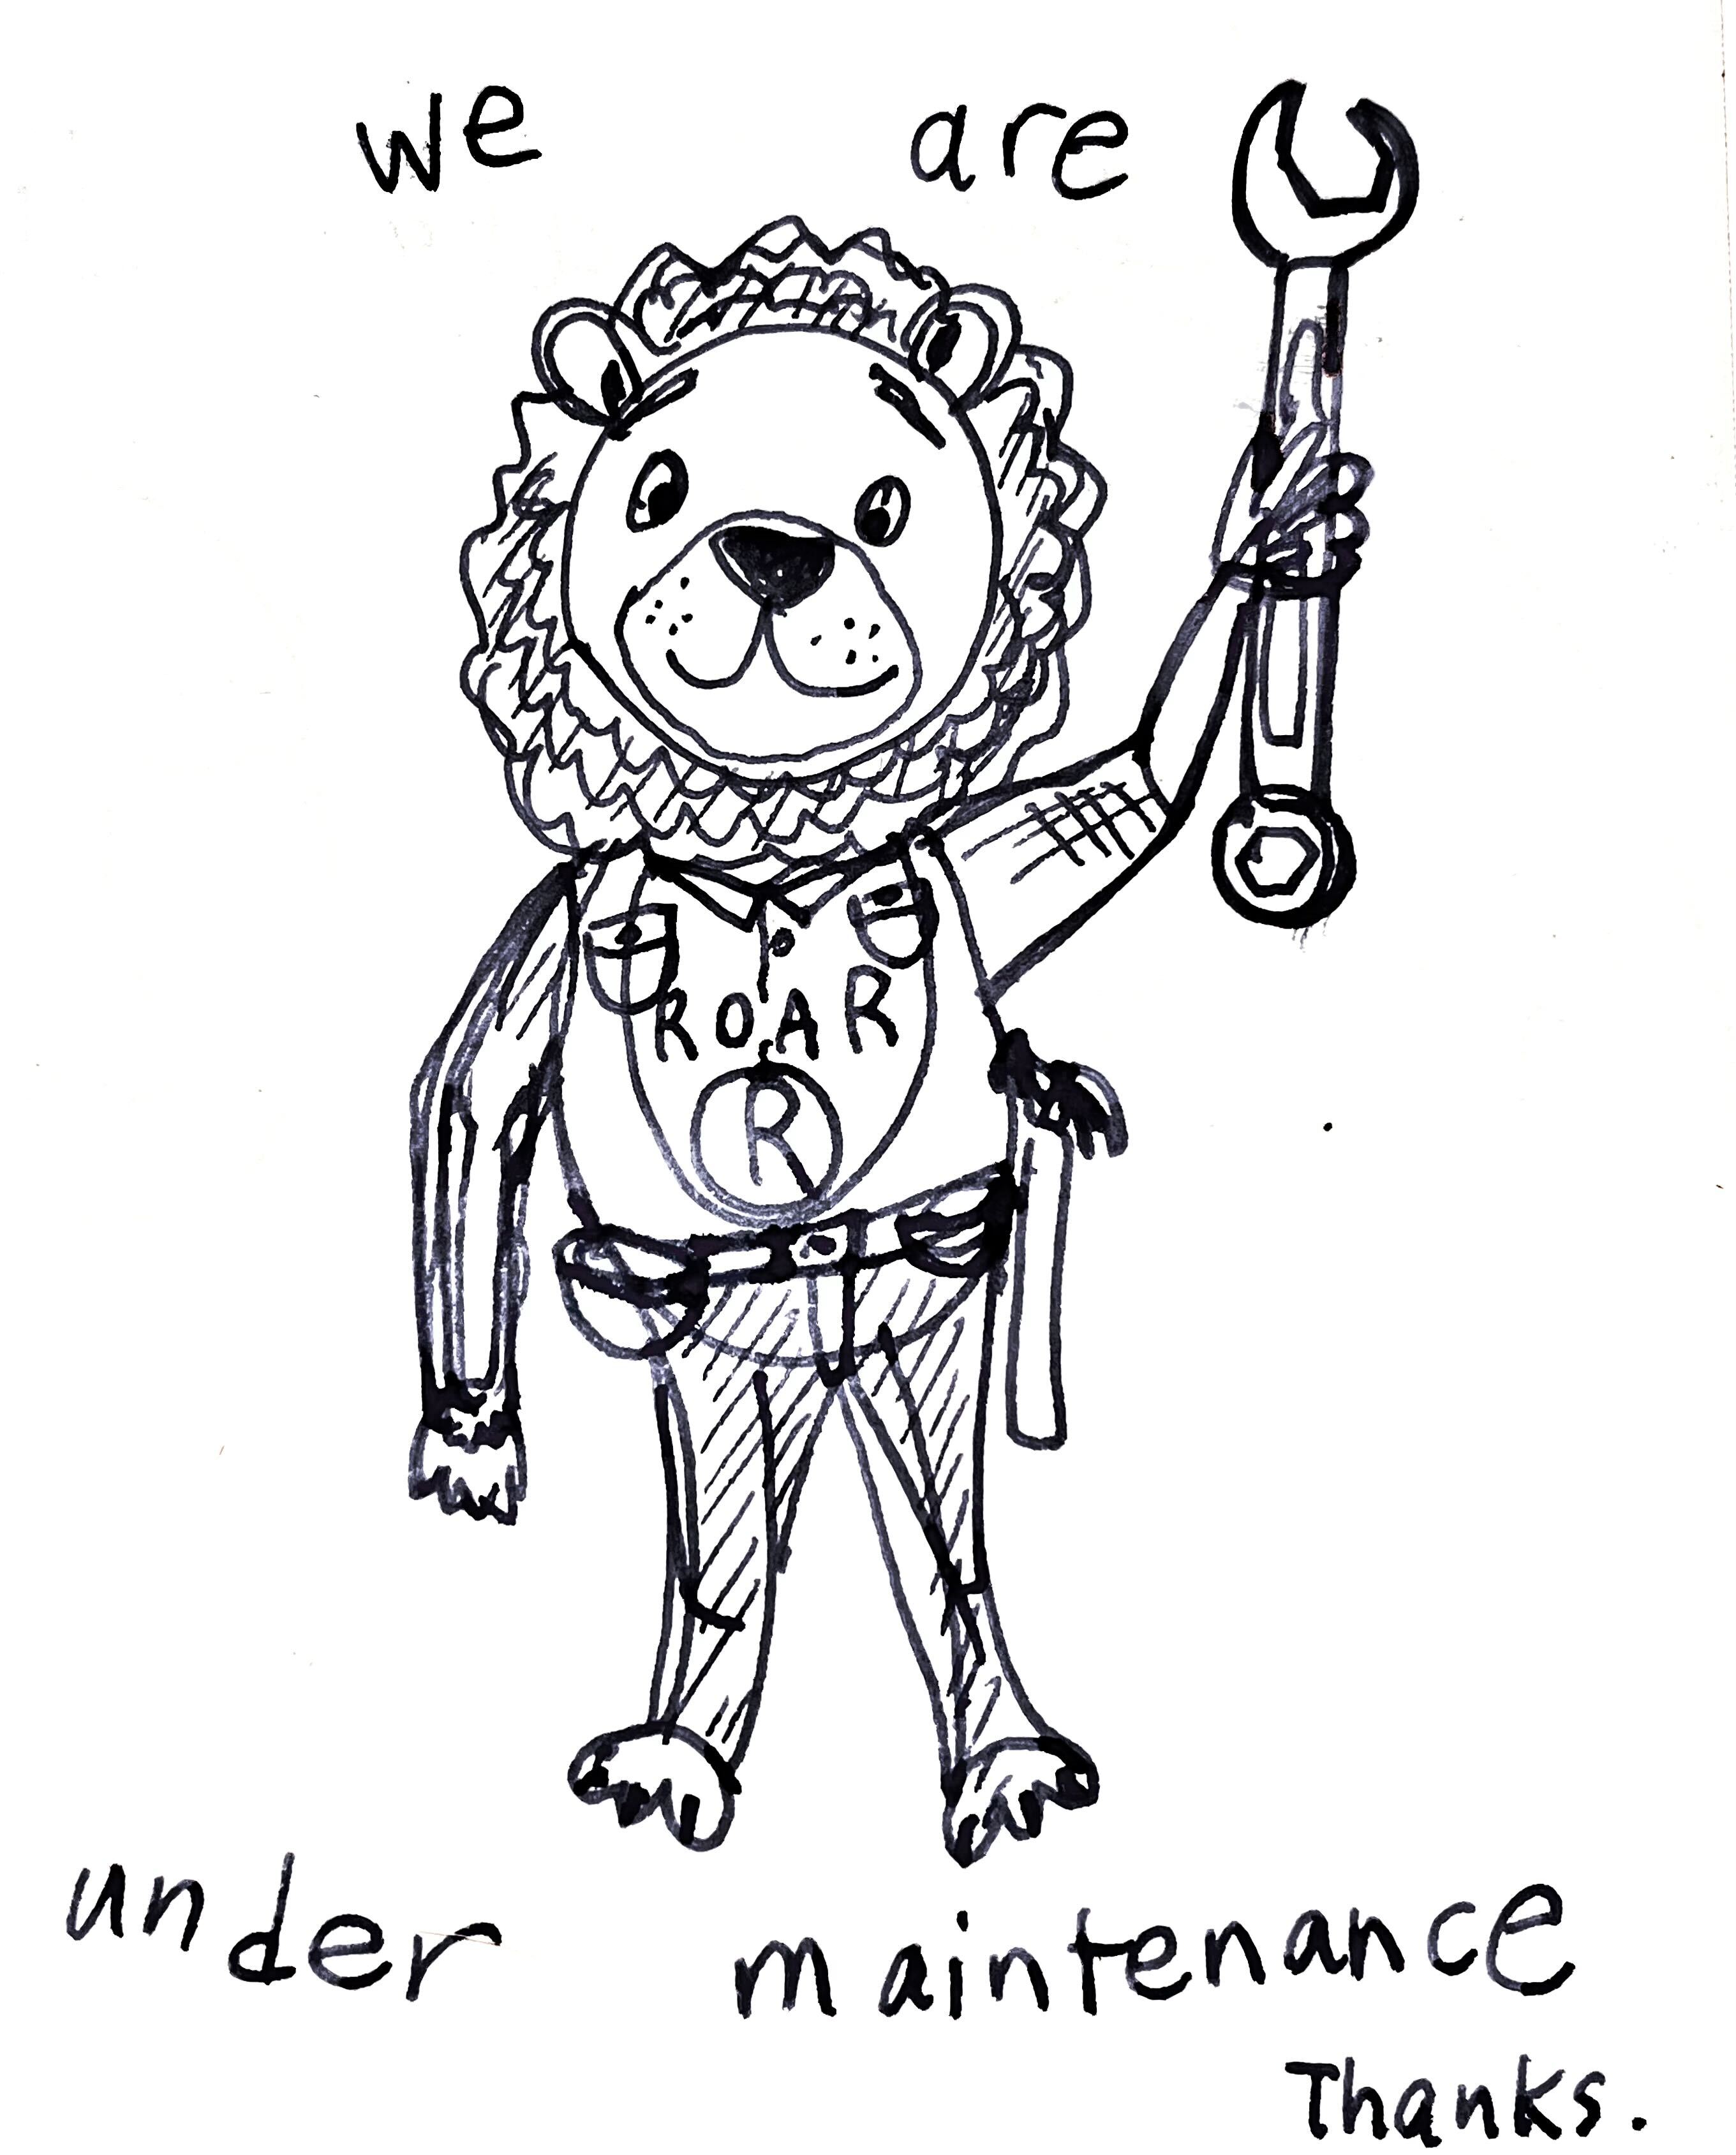 we are
ROAR
R
under maintenance
Thanks.